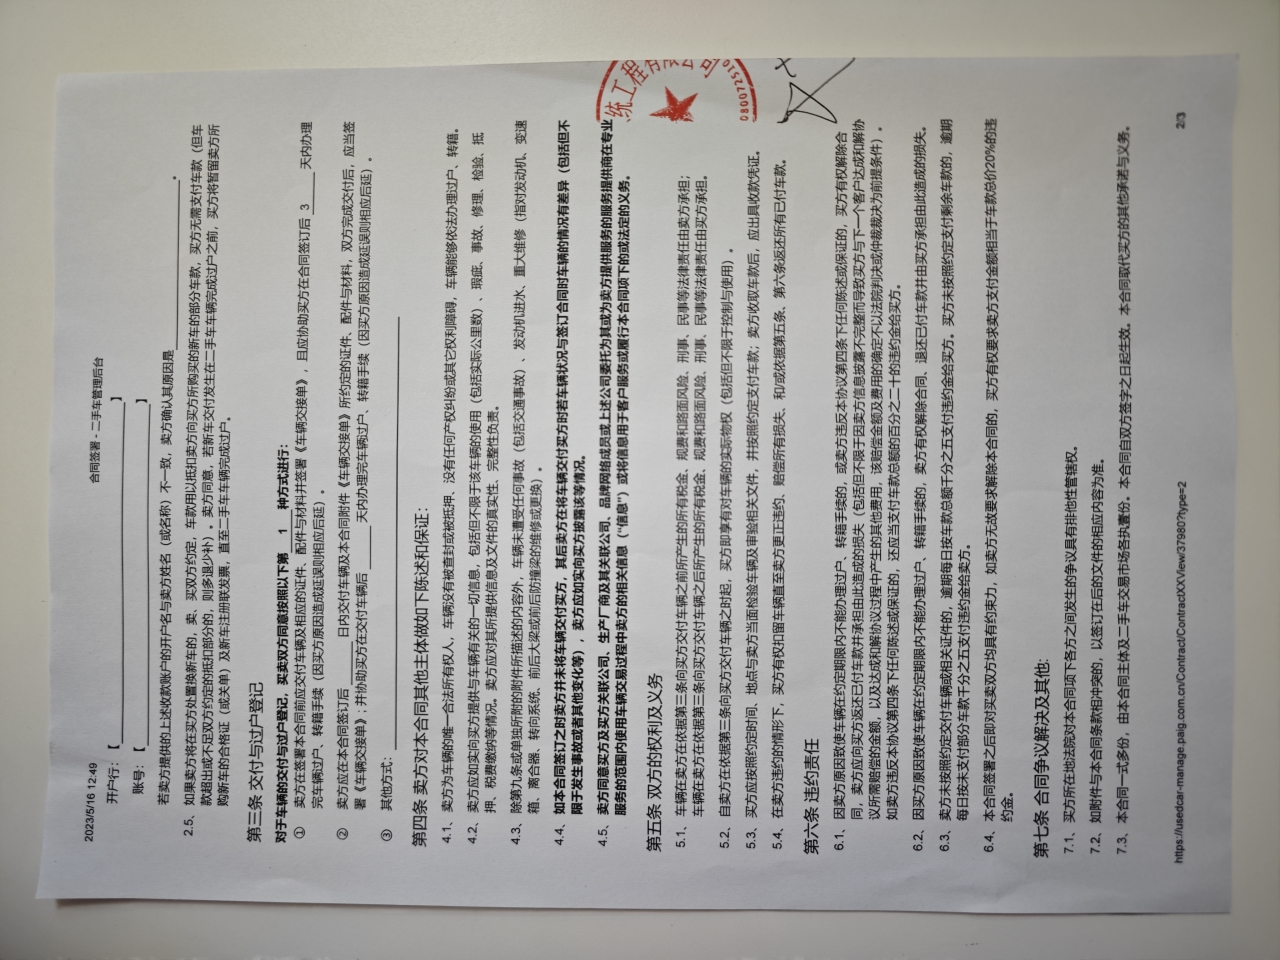 2023/5/16 12:49 合同签署 - 二手车管理后台
开户行：【 】
账号：【 】
若卖方提供的上述收款账户的开户名与卖方姓名（或名称）不一致，卖方确认其原因是 。
2.5、如果卖方将在买方处置换新车的，卖、买双方约定，车款用以抵扣卖方向买方所购买的新车的部分车款，买方无需支付车款（但车
款超出或不足双方约定的抵扣部分的，则多退少补）。卖方同意，若新车交付发生在二手车车辆完成过户之前，买方将暂留卖方所
购新车的合格证（或关单）及新车注册联发票，直至二手车车辆完成过户。
第三条 交付与过户登记
对于车辆的交付与过户登记，买卖双方同意按照以下第 1 种方式进行：
① 卖方在签署本合同前应交付车辆及相应的证件、配件与材料并签署《车辆交接单》，且应协助买方在合同签订后 3 天内办理
完车辆过户、转籍手续（因买方原因造成延误则相应后延）。
② 卖方应在本合同签订后 日内交付车辆及本合同附件《车辆交接单》所约定的证件、配件与材料，双方完成交付后，应当签
署《车辆交接单》；并协助买方在交付车辆后 天内办理完车辆过户、转籍手续（因买方原因造成延误则相应后延）。
③ 其他方式：
第四条 卖方对本合同其他主体做如下陈述和保证：
4.1、卖方为车辆的唯一合法所有权人，车辆没有被查封或被抵押，没有任何产权纠纷或其它权利障碍，车辆能够依法办理过户、转籍。
4.2、卖方应如实向买方提供与车辆有关的一切信息，包括但不限于该车辆的使用（包括实际公里数）、瑕疵、事故、修理、检验、抵
押、税费缴纳等情况。卖方应对其所提供信息及文件的真实性、完整性负责。
4.3、除第九条或单独所附的附件所描述的内容外，车辆未遭受任何事故（包括交通事故）、发动机进水、重大维修（指对发动机、变速
箱、离合器、转向系统、前后大梁或前后防撞梁的维修或更换）。
4.4、如本合同签订之时卖方并未将车辆交付买方，其后卖方在将车辆交付买方时若车辆状况与签订合同时车辆的情况有差异（包括但不
限于发生事故或者其他变化等），卖方应如实向买方披露该等情况。
4.5、卖方同意买方及买方关联公司、生产厂商及其关联公司、品牌网络成员或上述公司委托为其或为卖方提供服务的服务提供商在专业
服务的范围内使用车辆交易过程中卖方的相关信息（“信息”）或将信息用于客户服务或履行本合同项下的或法定的义务。
第五条 双方的权利及义务
5.1、车辆在卖方在依据第三条向买方交付车辆之前所产生的所有税金、规费和路面风险、刑事、民事等法律责任由卖方承担；
车辆在卖方在依据第三条向买方交付车辆之后所产生的所有税金、规费和路面风险、刑事、民事等法律责任由买方承担。
5.2、自卖方在依据第三条向买方交付车辆之时起，买方即享有对车辆的实际物权（包括但不限于控制与使用）。
5.3、买方应按照约定时间、地点与卖方当面检验车辆及审验相关文件，并按照约定支付车款；卖方收取车款后，应出具收款凭证。
5.4、在卖方违约的情形下，买方有权扣留车辆直至卖方更正违约、赔偿所有损失、和/或依据第五条、第六条返还所有已付车款。
第六条 违约责任
6.1、因卖方原因致使车辆在约定期限内不能办理过户、转籍手续的，或卖方违反本协议第四条下任何陈述或保证的，买方有权解除合
同，卖方应向买方返还已付车款并承担由此造成的损失（包括但不限于因卖方信息披露不完整而导致买方与下一个客户达成和解协
议所需赔偿的金额，以及达成和解协议过程中产生的其他费用，该赔偿金额及费用的确定不以法院判决或仲裁裁决为前提条件）。
如卖方违反本协议第四条下任何陈述或保证的，还应当支付车款总额的百分之二十的违约金给买方。
6.2、因买方原因致使车辆在约定期限内不能办理过户、转籍手续的，卖方有权解除合同、退还已付车款并由买方承担由此造成的损失。
6.3、卖方未按照约定交付车辆或相关证件的，逾期每日按车款总额千分之五支付违约金给买方，买方未按照约定支付剩余车款的，逾期
每日按未支付部分车款千分之五支付违约金给卖方。
6.4、本合同签署之后即对买卖双方均具有约束力，如卖方无故要求解除本合同的，买方有权要求卖方支付金额相当于车款总价20%的违
约金。
第七条 合同争议解决及其他:
7.1、买方所在地法院对本合同项下各方之间发生的争议具有排他性管辖权。
7.2、如附件与本合同条款相冲突的，以签订在后的文件的相应内容为准。
7.3、本合同一式多份，由本合同主体及二手车交易市场各执壹份。本合同自双方签字之日起生效。本合同取代买方的其他承诺与义务。
https://usedcar-manage.paig.com.cn/Contract/ContractXXView/37980?type=2 2/3
统工程有限公司
080072510